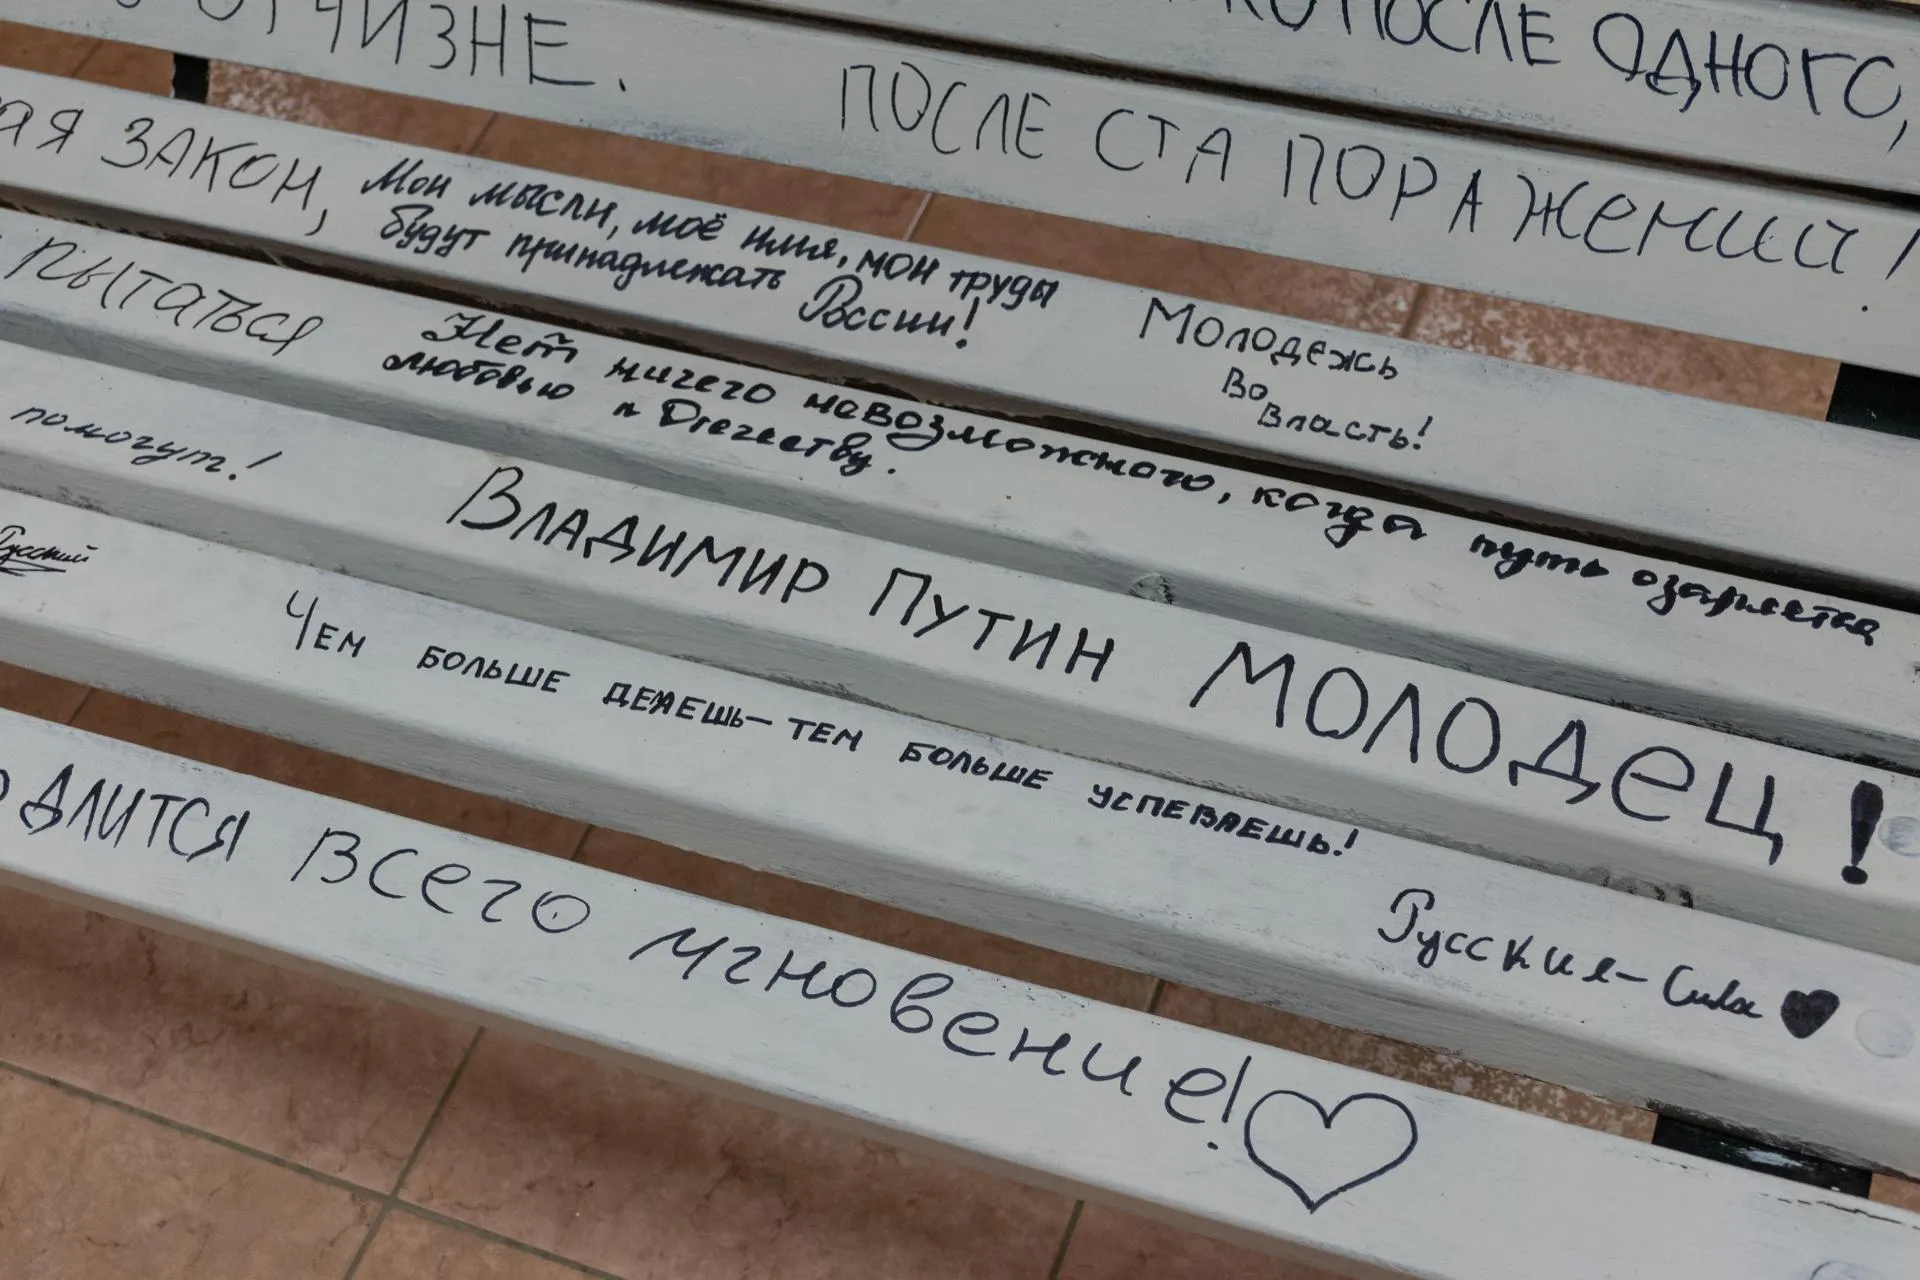 ПОСЛЕ ОДНОГО,
ОТЧИЗНЕ.
ПОСЛЕ СТА ПОРАЖЕНИЙ!
ЗАКОН,
Мои мысли, моё имя, мои труды
будут принадлежать
России!
Молодежь
Во
Власть!
ПЫТАТЬСЯ
Нет ничего невозможного, когда путь озаряется
любовью к Отечеству.
помогут!
Владимир Путин МОЛОДЕЦ!
Русский
Чем больше делаешь – тем больше успеваешь!
Русские – Сила
ДЛИТСЯ Всего мгновение!